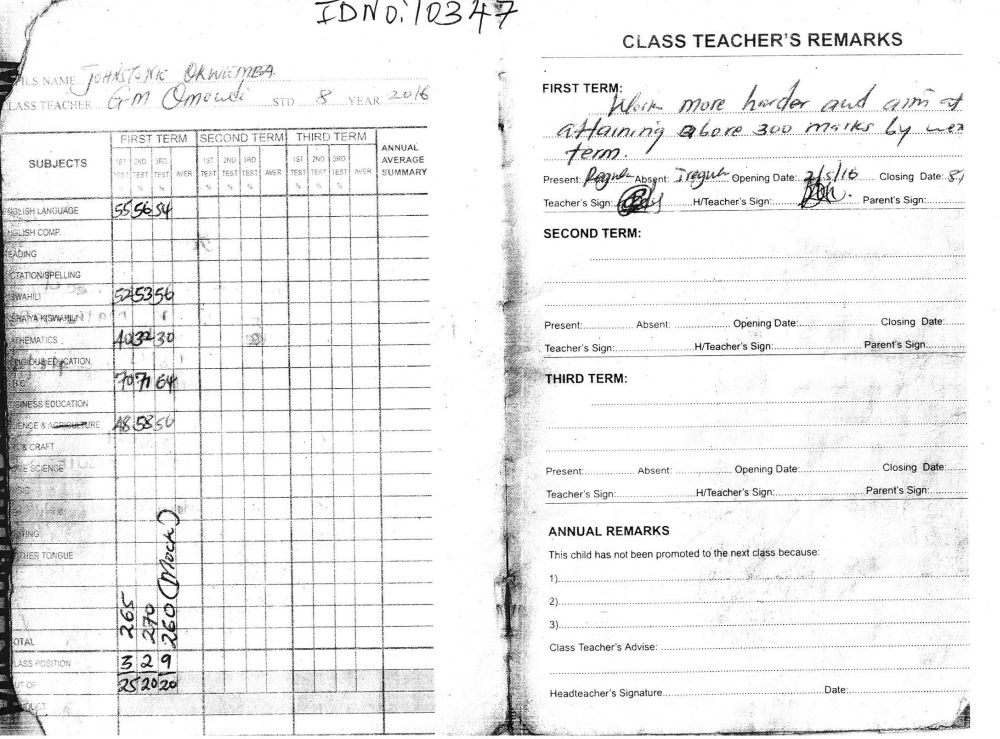 IDNO: 10347
ILS NAME JOHNSTONE OKWEMBA
LASS TEACHER G.M Omowdi STD 8 YEAR 2016
SUBJECTS FIRST TERM SECOND TERM THIRD TERM ANNUAL AVERAGE SUMMARY
1ST TEST % 2ND TEST % 3RD TEST % AVER 1ST TEST % 2ND TEST % 3RD TEST % AVER 1ST TEST % 2ND TEST % 3RD TEST % AVER
ENGLISH LANGUAGE 55 56 54
NGLISH COMP.
EADING
CTATION/SPELLING
SWAHILI 52 53 56
SHAIYA KISWAHILI
ATHEMATICS 40 32 30
RELIGIOUS EDUCATION
70 71 64
SINESS EDUCATION
IENCE & AGRICULTURE 48 58 56
& CRAFT
ME SCIENCE
SIC
ITING
THER TONGUE
OTAL 265 270 260 (Mock)
LASS POSITION 3 2 9
UT OF 25 20 20
CLASS TEACHER'S REMARKS
FIRST TERM: Work more harder and aim at
attaining above 300 marks by nex
term.
Present: Regular Absent: Iregular Opening Date: 2/5/16 Closing Date: 8/
Teacher's Sign: H/Teacher's Sign: Parent's Sign:
SECOND TERM:
Present: Absent: Opening Date: Closing Date:
Teacher's Sign: H/Teacher's Sign: Parent's Sign:
THIRD TERM:
Present: Absent: Opening Date: Closing Date:
Teacher's Sign: H/Teacher's Sign: Parent's Sign:
ANNUAL REMARKS
This child has not been promoted to the next class because:
1)
2)
3)
Class Teacher's Advise:
Headteacher's Signature Date: